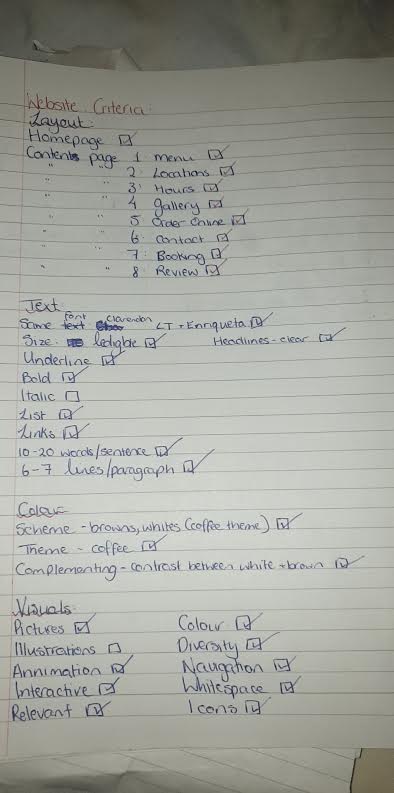 Website Criteria:
Layout:
Homepage ☑
Contents page 1 menu ☑
" " 2 Locations ☑
" " 3 Hours ☑
" " 4 gallery ☑
" " 5 Order Online ☑
" " 6 Contact ☑
" " 7 Booking ☑
" " 8 Review ☑
Text
Same text font Clarendon LT + Enriqueta ☑
Size - ledigble ☑ Headlines - clear ☑
Underline ☑
Bold ☑
Italic ☐
List ☑
Links ☑
10-20 words/sentence ☑
6-7 lines/paragraph ☑
Colour
Scheme - browns, whites (coffee theme) ☑
Theme - coffee ☑
Complementing - contrast between white + brown ☑
Visuals
Pictures ☑ Colour ☑
Illustrations ☐ Diversity ☑
Annimation ☑ Navigation ☑
Interactive ☑ Whitespace ☑
Relevant ☑ Icons ☑